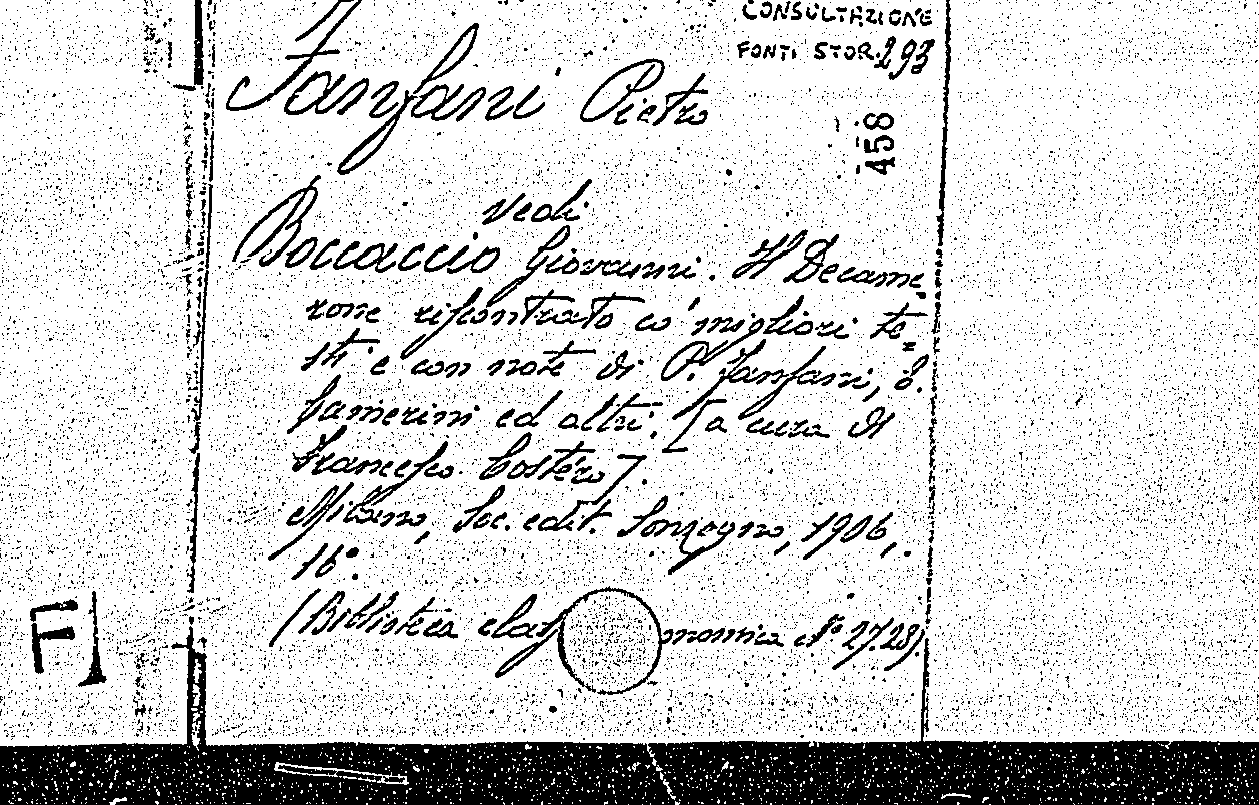 CONSULTAZIONE
FONTI STOR. 293
Fanfani Pietro
458
Vedi
Boccaccio Giovanni. Il Decame-
rone riscontrato co' migliori te=
sti e con note di P. Fanfani, E.
Camerini ed altri. [a cura di
Francesco Costèro].
Milano, Soc. edit. Sonzogno, 1906,.
16°.
(Biblioteca clas onomica N° 27.28).
F